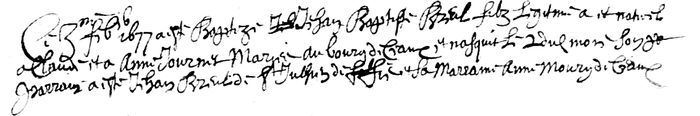 Ce 3me feb 1677 a esté Baptizé Jehan Baptiste Breul filz Legitime et naturel
a Claude et a Anne Tournier Mariés du bourg de Craux et nasquit le 2 du mois Son
parrain a esté Jehan Breul de St Julhien de et sa Marraine Anne Moury de Craux